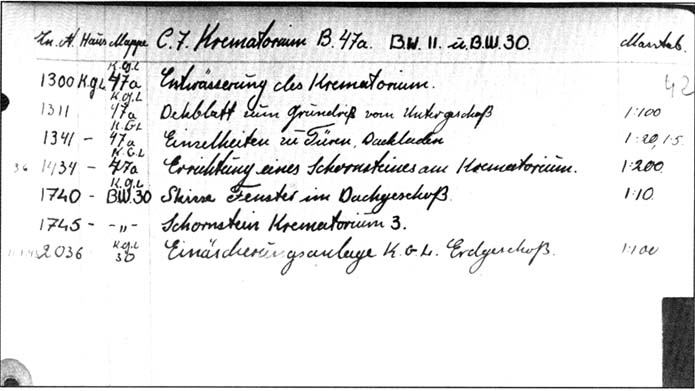 Zn. A. Haus Mappe C. 7. Krematorium B. 47a. B.W. 11. u. B.W. 30. Masstab.
1300 K.g.L K.g.L 47a Entwässerung des Krematorium.
1311 K.g.L 47a Dekblatt zum Grundriß vom Untergeschoß 1:100
1341 - K.G.L 47a Einzelheiten zu Türen, Dackladen 1:20, 1:5.
1434 - K.G.L 47a Errichtung eines Schornsteines am Krematorium. 1:200.
1740 - K.g.L B.W.30 Skizze Fenster im Dachgeschoß. 1:10.
1745 - -„- Schornstein Krematorium 3.
2036 K.g.L 30 Einäscherungsanlage K.G.L. Erdgeschoß. 1:100
42